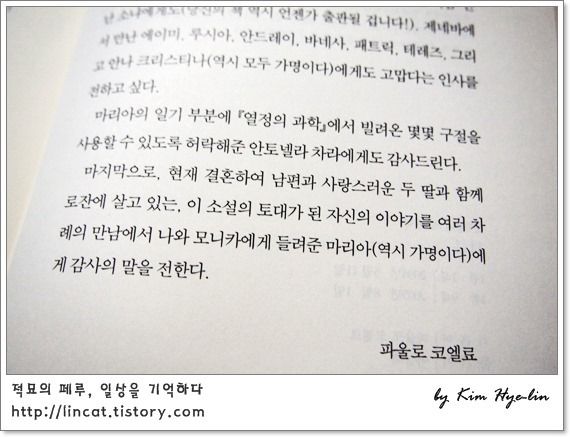 난 소냐에게도(당신의 책 역시 언젠가 출판될 겁니다!). 제네바에
서 만난 에이미, 루시아, 안드레이, 바네사, 패트릭, 테레즈, 그리
고 안나 크리스티나(역시 모두 가명이다)에게도 고맙다는 인사를
전하고 싶다.
마리아의 일기 부분에 『열정의 과학』에서 빌려온 몇몇 구절을
사용할 수 있도록 허락해준 안토넬라 차라에게도 감사드린다.
마지막으로, 현재 결혼하여 남편과 사랑스러운 두 딸과 함께
로잔에 살고 있는, 이 소설의 토대가 된 자신의 이야기를 여러 차
례의 만남에서 나와 모니카에게 들려준 마리아(역시 가명이다)에
게 감사의 말을 전한다.
파울로 코엘료
적묘의 페루, 일상을 기억하다
http://lincat.tistory.com
by Kim Hye-lin